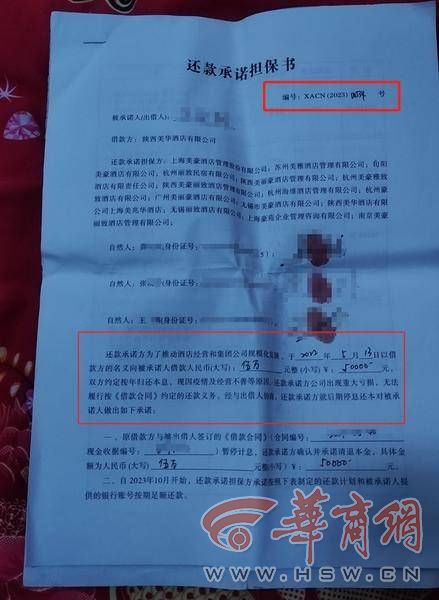 还款承诺担保书
编号：XACN (2023) 号
被承诺人(出借人)：
借款方：陕西美华酒店有限公司
还款承诺担保方：上海美豪酒店管理股份有限公司；苏州美雅酒店管理有限公司；旬阳
美豪酒店有限公司；杭州丽致民宿有限公司；陕西美丽豪酒店有限公司；陕西美豪雅致
酒店有限责任公司；陕西美豪丽致酒店管理有限公司；杭州海维酒店管理有限公司；杭州豪
致酒店有限公司；广州美丽豪酒店有限公司；无锡市美豪酒店有限公司；陕西美豪酒店有限
公司上海美兆华酒店；无锡丽致酒店有限公司；上海豪兆企业管理咨询有限公司；南京美豪
丽致酒店管理有限公司；
自然人：龚 (身份证号：
自然人：张 (身份证号：
自然人：王 (身份证号：
还款承诺方为了推动酒店经营和集团公司规模化发展，于 2022 年 5 月 13 日以借
款方的名义向被承诺人借款人民币(大写)：伍万 元整(小写)￥：50000-
双方约定按年归还本息，现因疫情及经营不善等原因，还款承诺方公司出现重大亏损，无法
履行按《借款合同》约定的还款义务。经与出借人协商，还款承诺方就后期停息还本对被承
诺人做出如下承诺：
一、原借款方与出借人签订的《借款合同》(合同编号：
现金收据编号： )暂停计息，还款承诺方确认并承诺清退本金，具体金
额为人民币(大写)：伍万 元整(小写)￥：50000-
二、自 2023年10月开始，还款承诺担保方承诺按照下表制定的还款计划和被承诺人提
供的银行账号按期足额还款。
华商网
WWW.HSW.CN